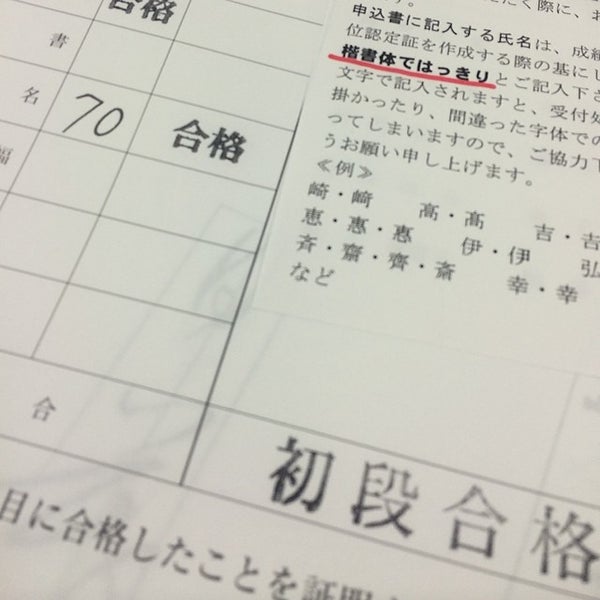 合格
書
名 70 合格
合
初段合格
目に合格したことを証明
申込書に記入する氏名は、成
位認定証を作成する際の基に
楷書体ではっきりとご記入下
文字で記入されますと、受付
掛かったり、間違った字体での
ってしまいますので、ご協力
うお願い申し上げます。
≪例≫
崎・﨑 高・髙 吉・𠮷
恵・惠・惠 伊・伊 弘
斉・齋・齊・斎 幸・幸
など